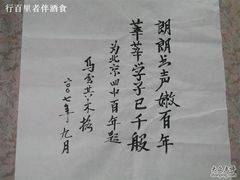 行百里者伴酒食
朗朗书声嫩百年
莘莘学子已千般
为北京四中百年题
二〇〇七年九月